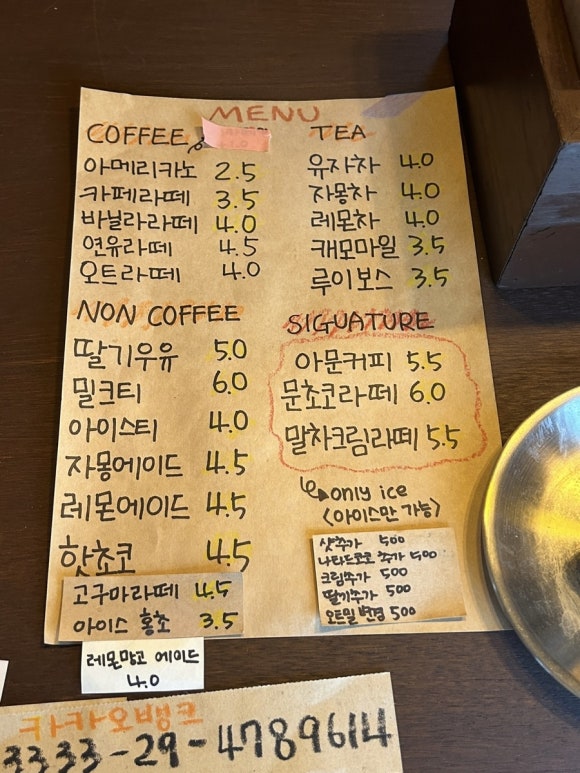 MENU
COFFEE
아메리카노 2.5
카페라떼 3.5
바닐라라떼 4.0
연유라떼 4.5
오트라떼 4.0
TEA
유자차 4.0
자몽차 4.0
레몬차 4.0
캐모마일 3.5
루이보스 3.5
NON COFFEE
딸기우유 5.0
밀크티 6.0
아이스티 4.0
자몽에이드 4.5
레몬에이드 4.5
핫초코 4.5
고구마라떼 4.5
아이스 홍초 3.5
레몬망고 에이드
4.0
SIGUATURE
아문커피 5.5
문초코라떼 6.0
말차크림라떼 5.5
only ice
<아이스만 가능>
샷추가 500
나타드코코 추가 500
크림추가 500
딸기추가 500
오트밀 변경 500
카카오뱅크
3333-29-4789614